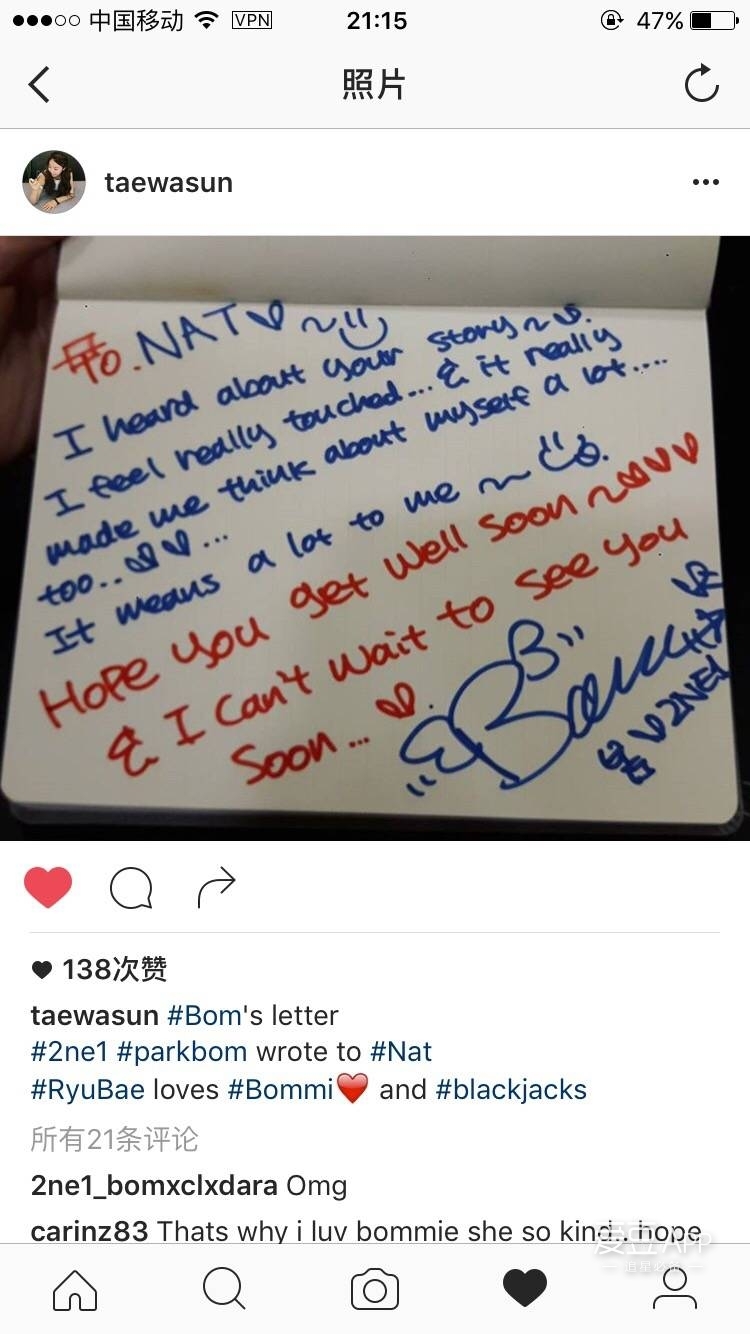 中国移动 VPN 21:15 47%
照片
taewasun
To. NAT♡ ~
I heard about your story~♡.
I feel really touched...& it really
made me think about myself a lot....
too..♡♡...
It means a lot to me ~
Hope you get well soon ~♡♡♡
& I can't wait to see you
soon... ♡.
Bom
봄 ♡ 2NE1
138次赞
taewasun #Bom's letter
#2ne1 #parkbom wrote to #Nat
#RyuBae loves #Bommi❤️ and #blackjacks
所有21条评论
2ne1_bomxclxdara Omg
carinz83 Thats why i luv bommie she so kind.. hope
爱豆APP